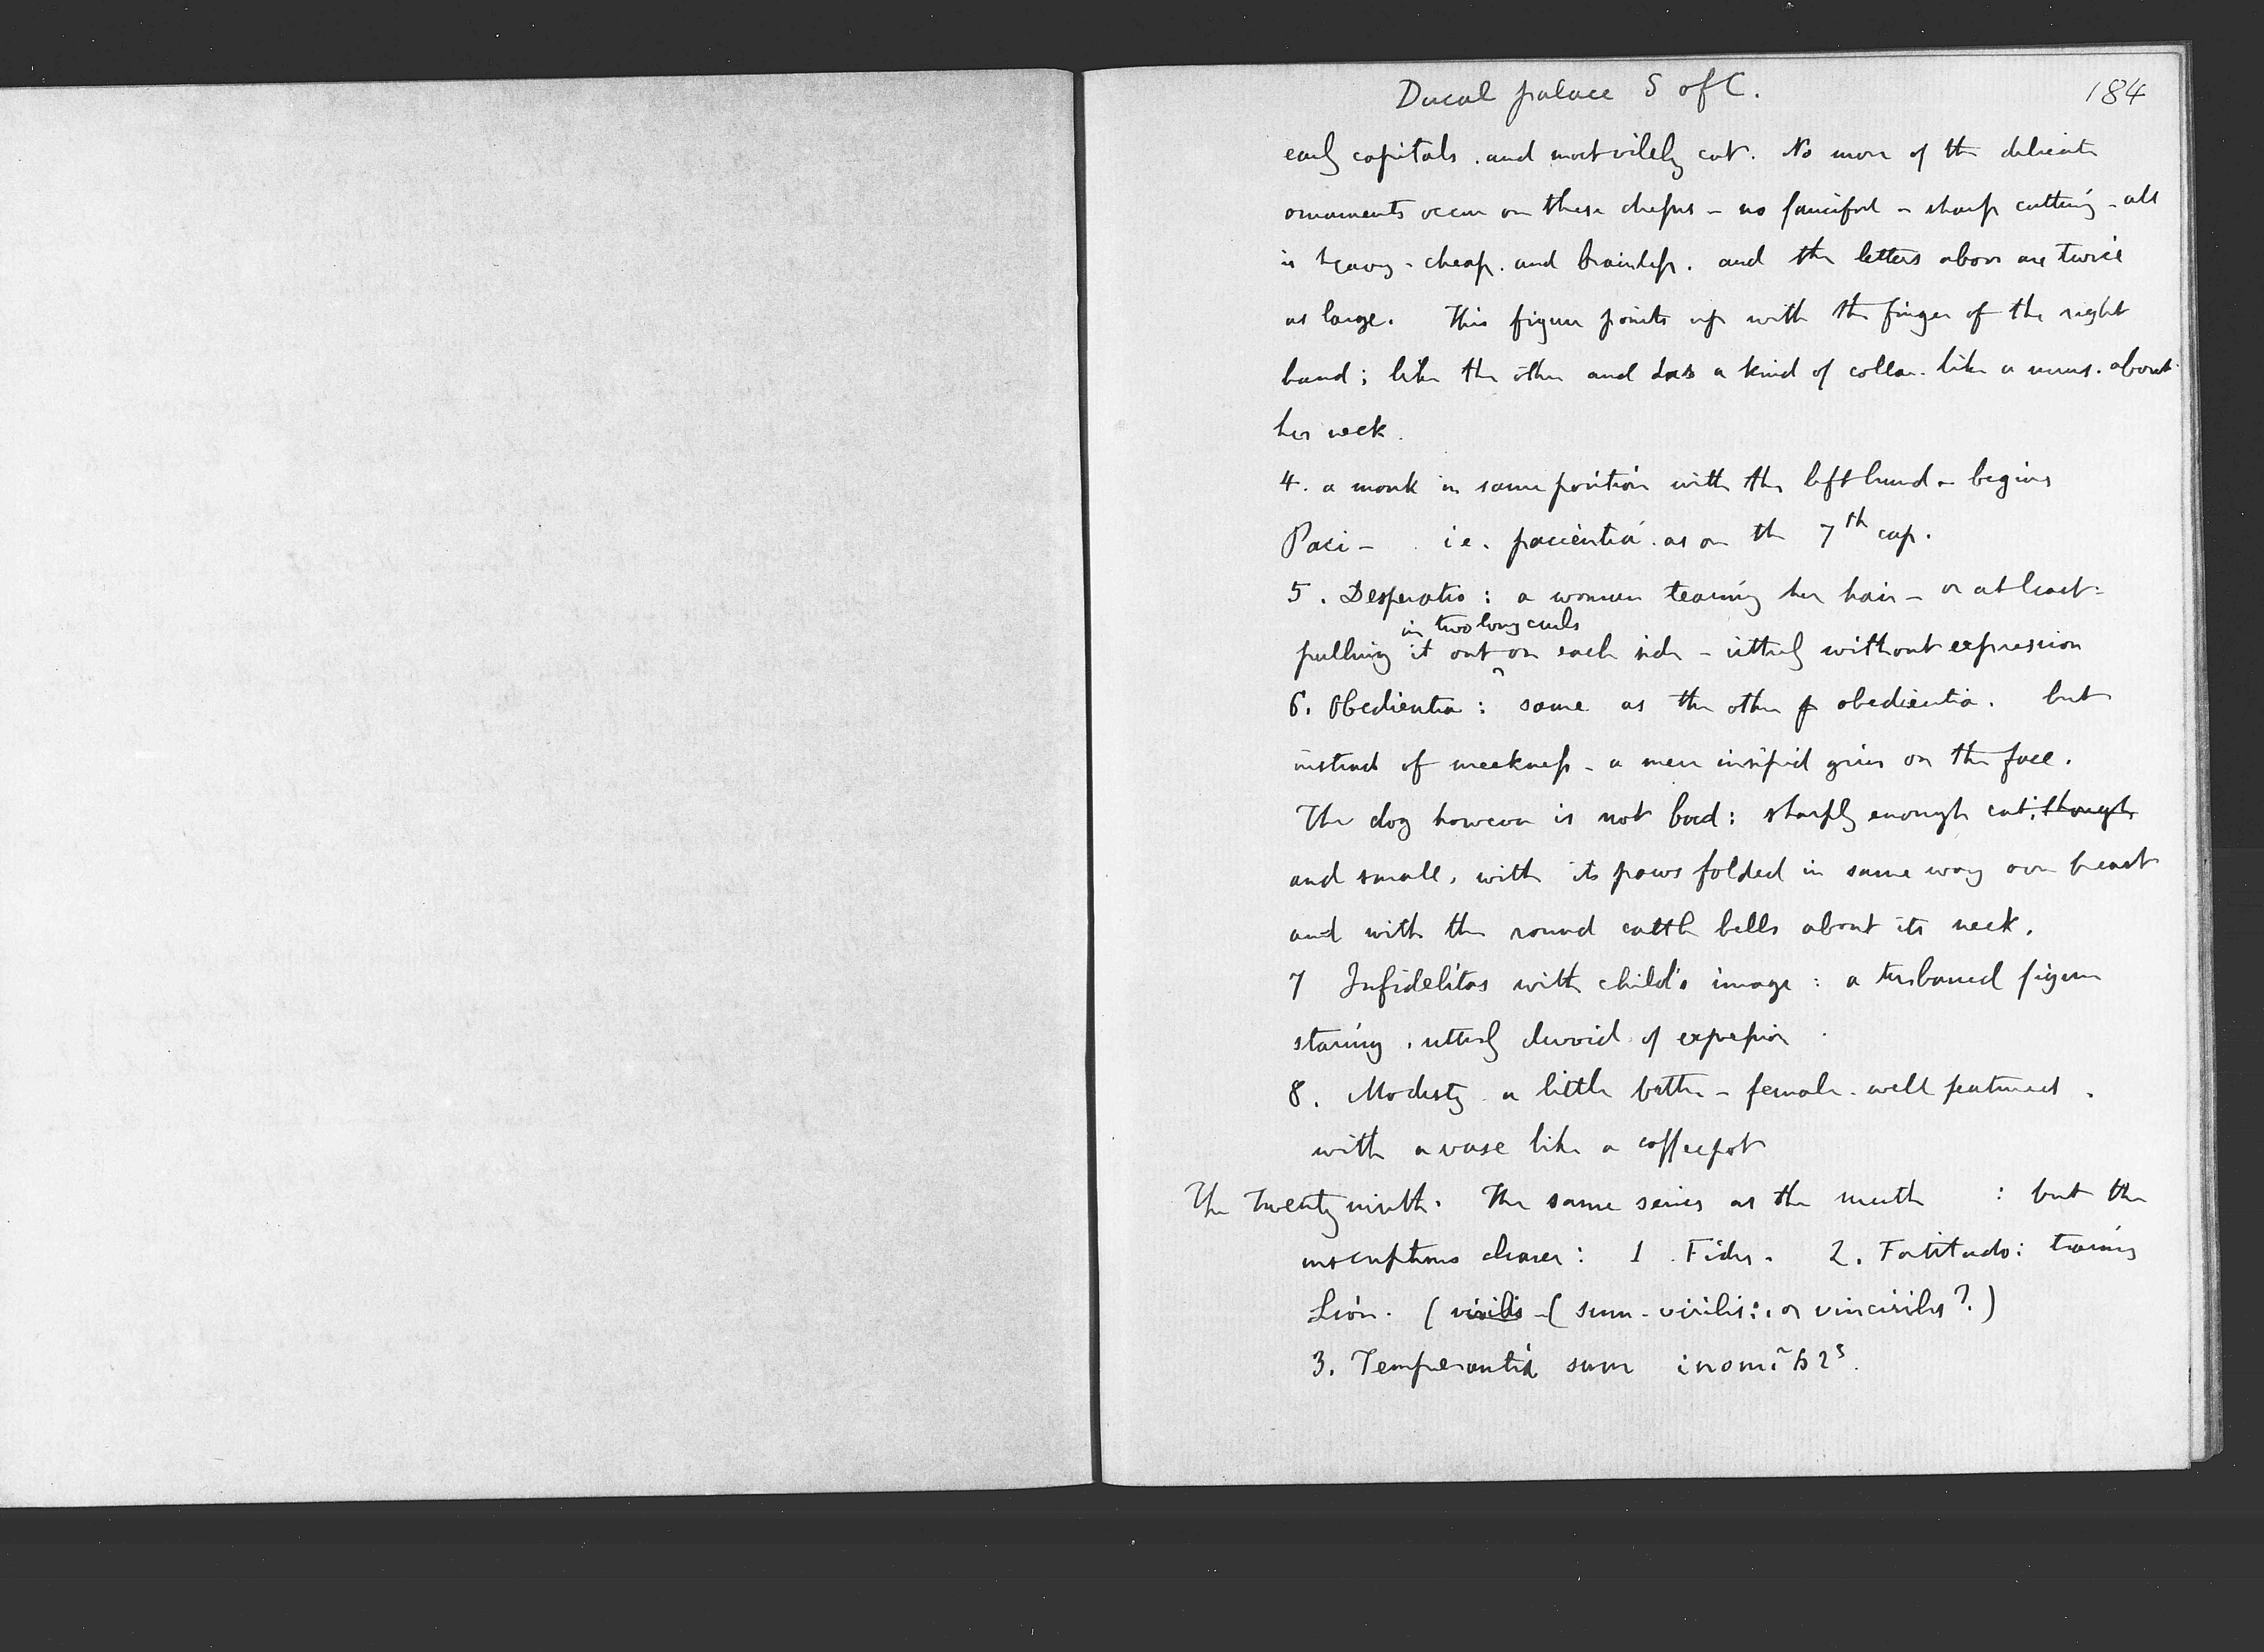 Ducal palace S of C.
184
early capitals. and most vilely cut. No more of the delicate
ornaments occur on these chefus - no fanciful - sharp cutting - all
is heavy - cheap. and brainless. and the letters above are twice
as large. This figure points up with the finger of the right
hand; like the other and has a kind of collar. like a nuns. about
her neck.
4. a monk in same position with the left hand - begins
Paci - i.e. pacientia. as on the 7th cap.
5. Desperatio: a woman tearing her hair - or at least -
in two long curls
pulling it out on each side - utterly without expression
6. Obedientia: same as the other obedientia. but
instead of meekness - a mere insipid grin on the face.
The dog however is not bad: sharply enough cut: though
and small, with its paws folded in same way over breast
and with the round cattle bells about its neck.
7 Infidelitas with child's image: a turbaned figure
staring, utterly devoid of expression.
8. Modesty a little better - female. well featured.
with a vase like a coffeepot
The twenty ninth. The same series as the : but the
inscriptions clearer: 1. Fides. 2. Fortitudo: tearing
Lion. (virilis - (sum - virilis: or vincirilis?.)
3. Temperantia sum inomi